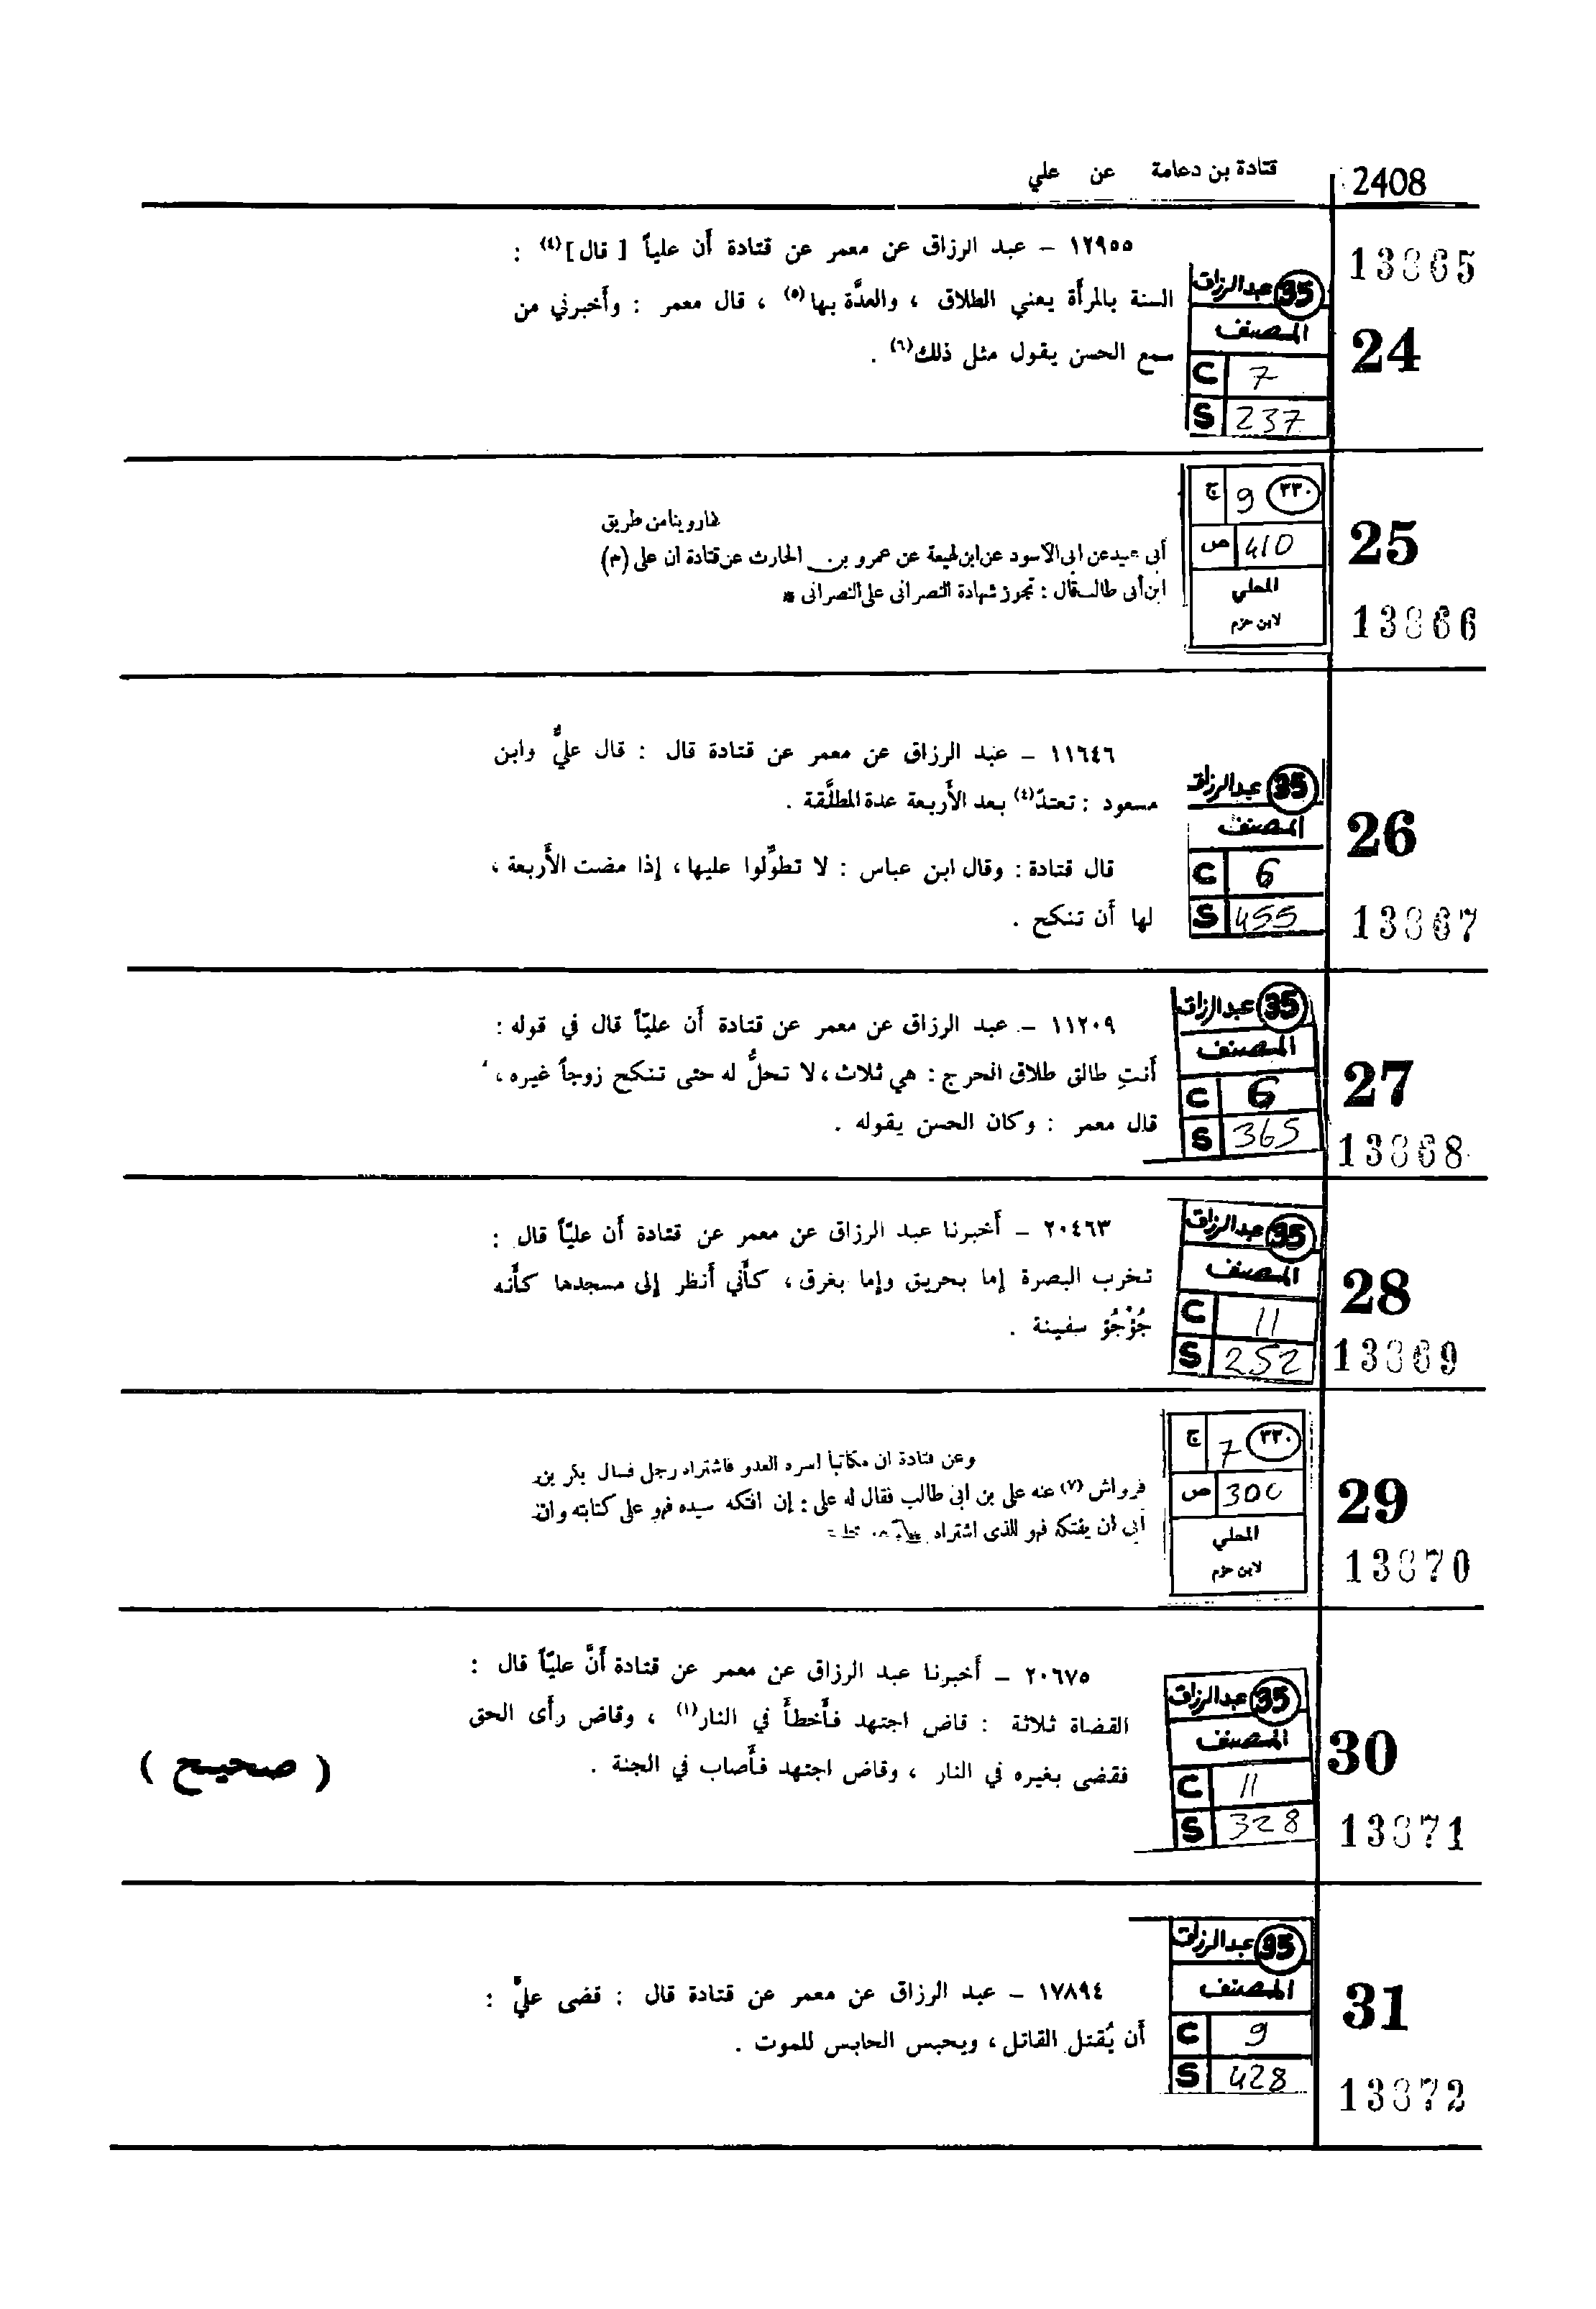 2408 قتادة بن دعامة عن علي
13865
24
35 عبدالرزاق
المصنف
C 7
S 237
١٢٩٥٥ - عبد الرزاق عن معمر عن قتادة أن علياً [ قال ](٤) :
السنة بالمرأة يعني الطلاق ، والعدَّة بها(٥) ، قال معمر : وأخبرني من
سمع الحسن يقول مثل ذلك(٦) .
25
13866
٣٣٠ 9 ج
410 ص
المحلي
لابن حزم
روينا من طريق
أبي عبيد عن ابي الاسود عن ابن لهيعة عن عمرو بن الحارث عن قتادة ان علي (م)
ابن أبي طالب قال : تجوز شهادة النصراني على النصراني *
26
13867
35 عبدالرزاق
المصنف
C 6
S 455
١١٦٤٦ - عبد الرزاق عن معمر عن قتادة قال : قال عليٌّ وابن
مسعود : تعتدّ(٤) بعد الأَربعة عدة المطلَّقة .
قال قتادة : وقال ابن عباس : لا تطوِّلوا عليها ، إذا مضت الأَربعة ،
لها أَن تنكح .
27
13868
35 عبدالرزاق
المصنف
C 6
S 365
١١٢٠٩ - عبد الرزاق عن معمر عن قتادة أَن عليّاً قال في قوله :
أَنتِ طالق طلاق الحرج : هي ثلاث ، لا تحلُّ له حتى تنكح زوجاً غيره ،
قال معمر : وكان الحسن يقوله .
28
13869
35 عبدالرزاق
المصنف
C 11
S 252
٢٠٤٦٣ - أَخبرنا عبد الرزاق عن معمر عن قتادة أَن عليّاً قال :
تخرب البصرة إما بحريق وإما بغرق ، كأَني أَنظر إلى مسجدها كأَنه
جُؤْجُؤ سفينة .
29
13870
٣٣٠ 7 ج
300 ص
المحلي
لابن حزم
وعن قتادة ان مكاتبا اسره العدو فاشتراه رجل فسال بكر بن
قرواش (٧) عنه علي بن ابي طالب فقال له علي : إن افتكه سيده فهو على كتابته وان
أبى ان يفتكه فهو للذي اشتراه
30
13871
35 عبدالرزاق
المصنف
C 11
S 328
٢٠٦٧٥ - أَخبرنا عبد الرزاق عن معمر عن قتادة أَنَّ عليّاً قال :
القضاة ثلاثة : قاض اجتهد فأَخطأَ في النار(١) ، وقاض رأَى الحق
فقضى بغيره في النار ، وقاض اجتهد فأَصاب في الجنة .
( صحيح )
31
13872
35 عبدالرزاق
المصنف
C 9
S 428
١٧٨٩٤ - عبد الرزاق عن معمر عن قتادة قال : قضى عليٌّ :
أَن يُقتل القاتل ، ويحبس الحابس للموت .